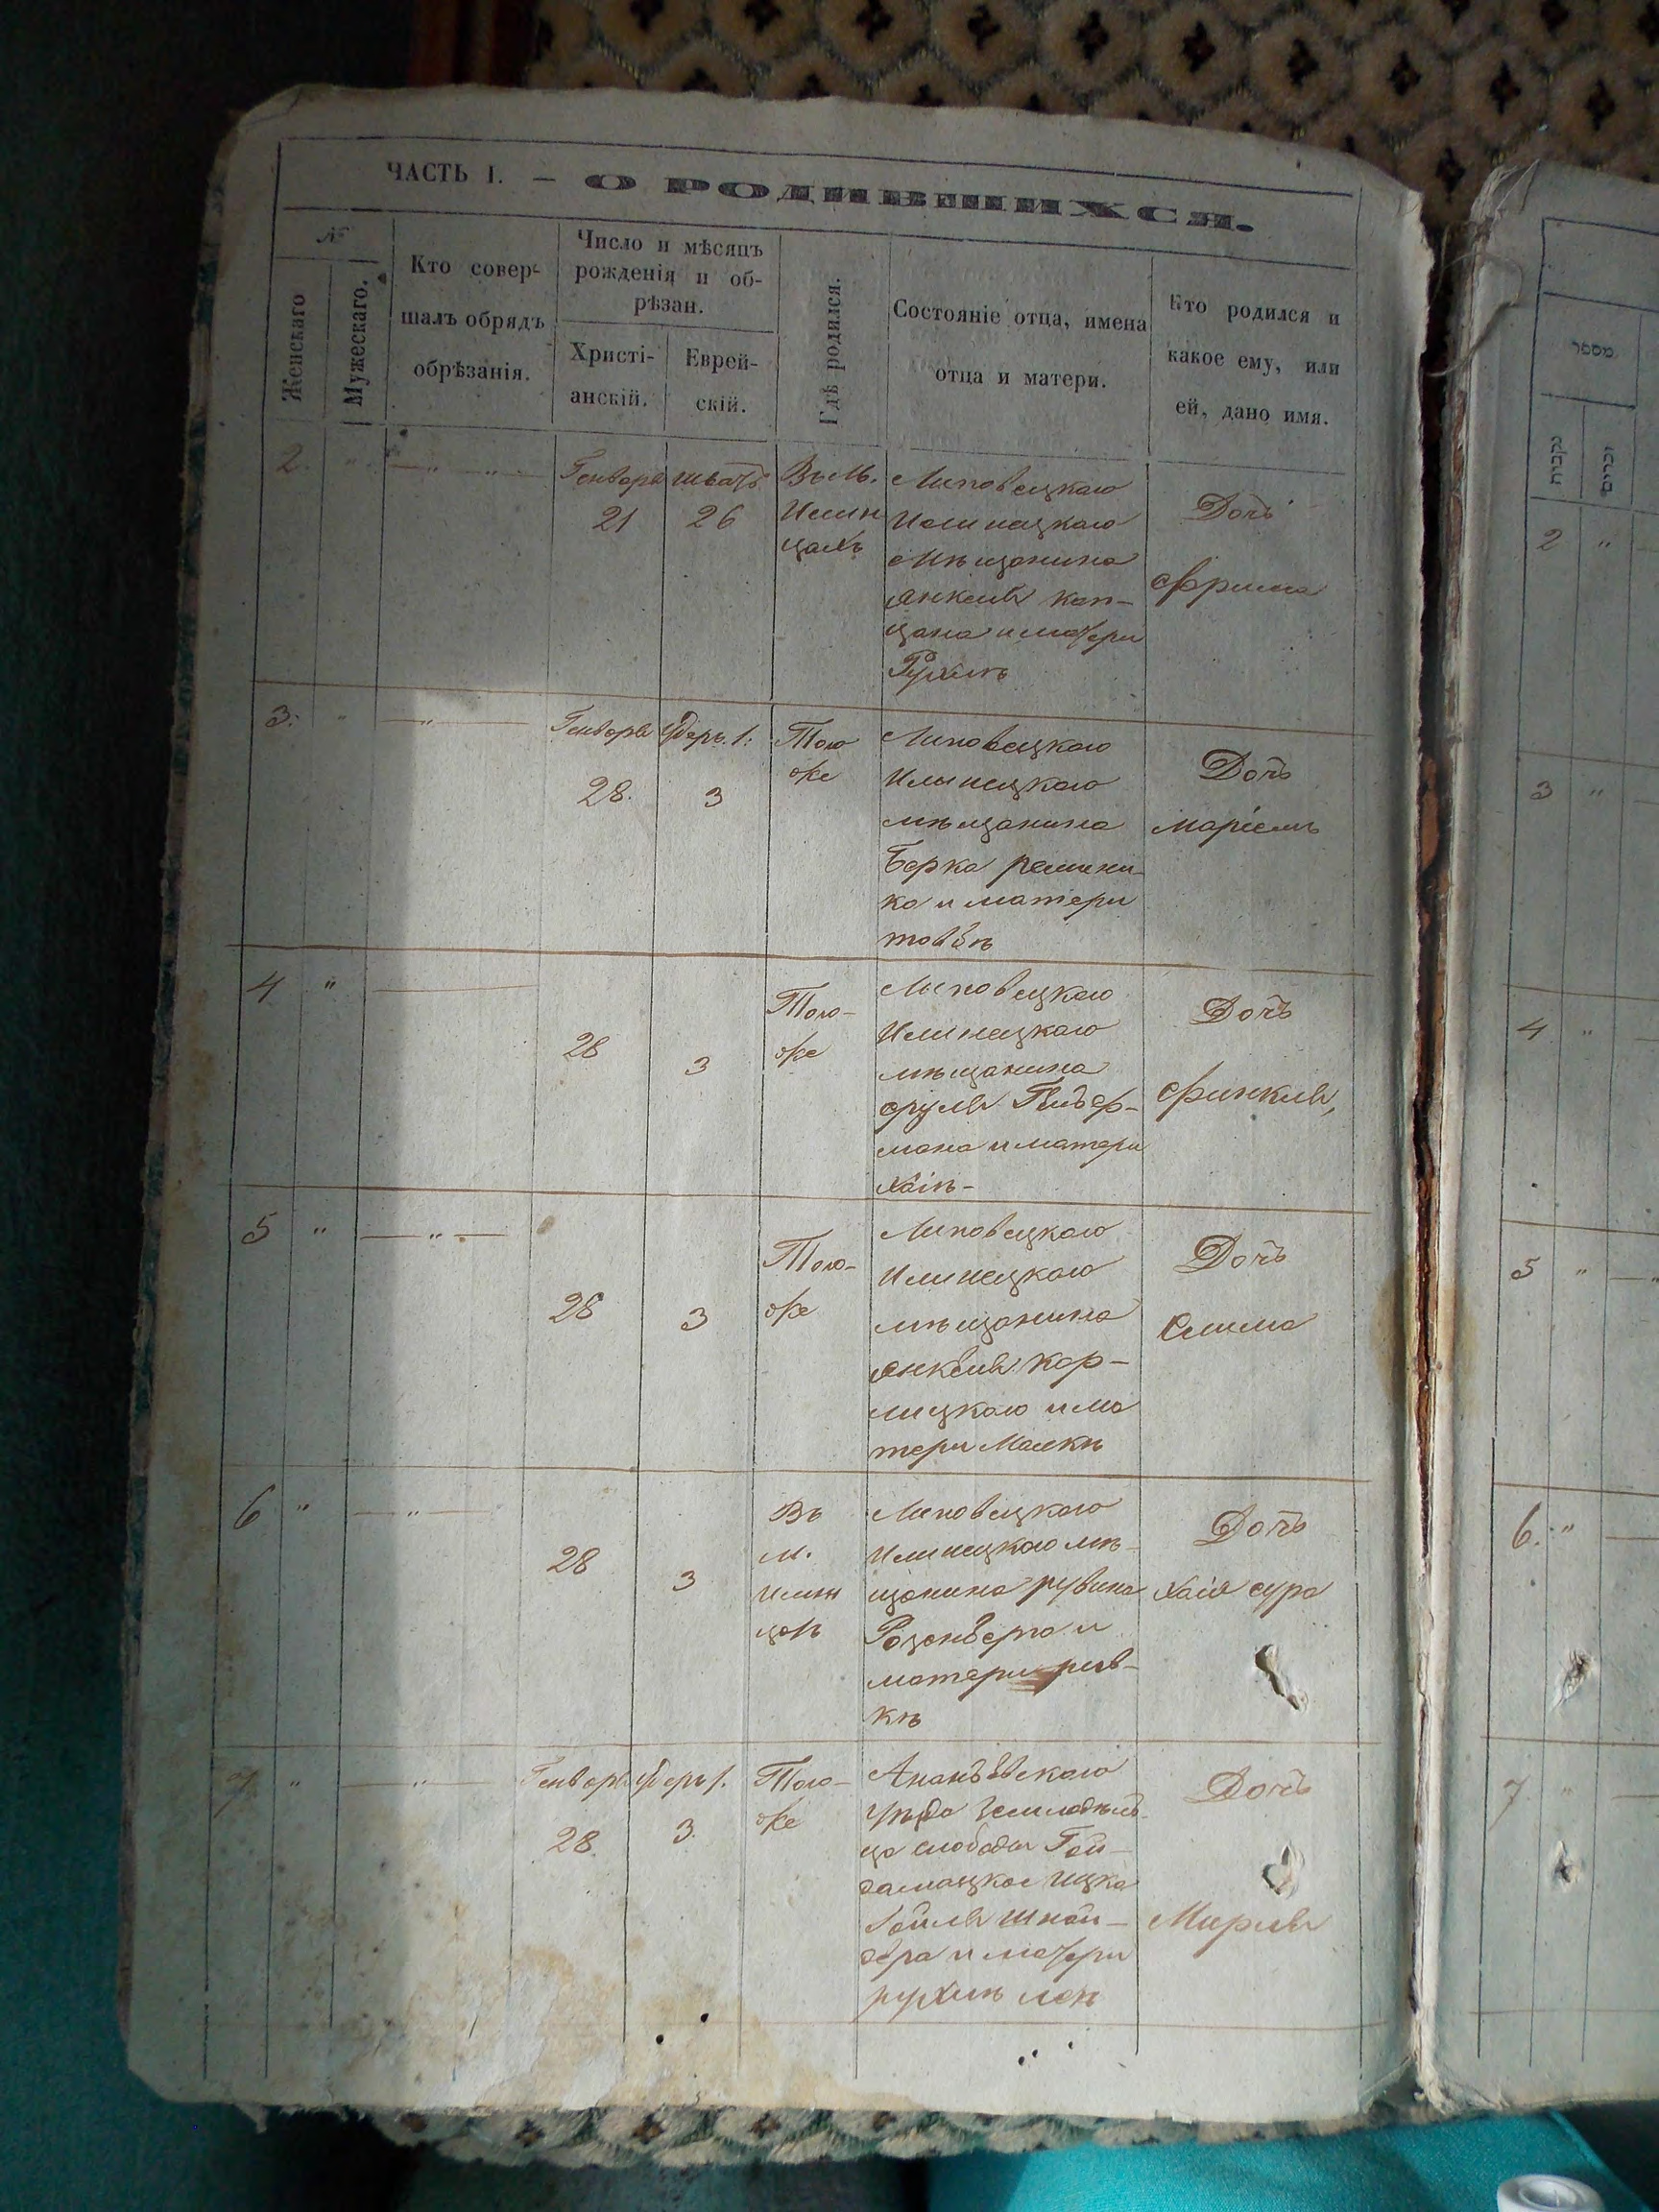 ЧАСТЬ I. — О РОДИВШИХСЯ.
№
Женскаго
Мужескаго.
Кто совер-
шалъ обрядъ
обрѣзанія.
Число и мѣсяцъ
рожденія и об-
рѣзан.
Христі-
анскій.
Еврей-
скій.
Гдѣ родился.
Состояніе отца, имена
отца и матери.
Кто родился и
какое ему, или
ей, дано имя.
2.
Генваря
21
шватъ
26
Въ М.
Илин
цахъ
Липовецкаго
Илинецкаго
Мѣщанина
Янкеля Кап-
цана и матери
Рухлѣ
Дочь
Фрима
3.
Генваря
28.
Адеръ 1:
3
Того
же
Липовецкаго
Илинецкаго
мѣщанина
Берка
ка и матери
товбѣ
Дочь
Маріемъ
4
28
3
Того-
же
Липовецкаго
Илинецкаго
мѣщанина
сруля
мана и матери
Хаіѣ-
Дочь
Финкля,
5
28
3
Того-
же
Липовецкаго
Илинецкаго
мѣщанина
Янкеля Кор-
лицкаго и ма
тери Малкѣ
Дочь
Симма
6
28
3
Въ
м.
Илин
цахъ
Липовецкаго
Илинецкаго мѣ-
щанина рувина
Розенберга и
матери рив-
кѣ
Дочь
Хаія сура
7
Генваря
28.
Адеръ 1.
3.
Того-
же
Ананьевскаго
уѣзда земледѣль
ца слободы Гай-
дамацкое Ицка
Гойля Шнай-
дера и матери
рухлѣ леѣ
Дочь
Мирля
מספר
נקבות
זכרים
2
3
4
5
6.
7